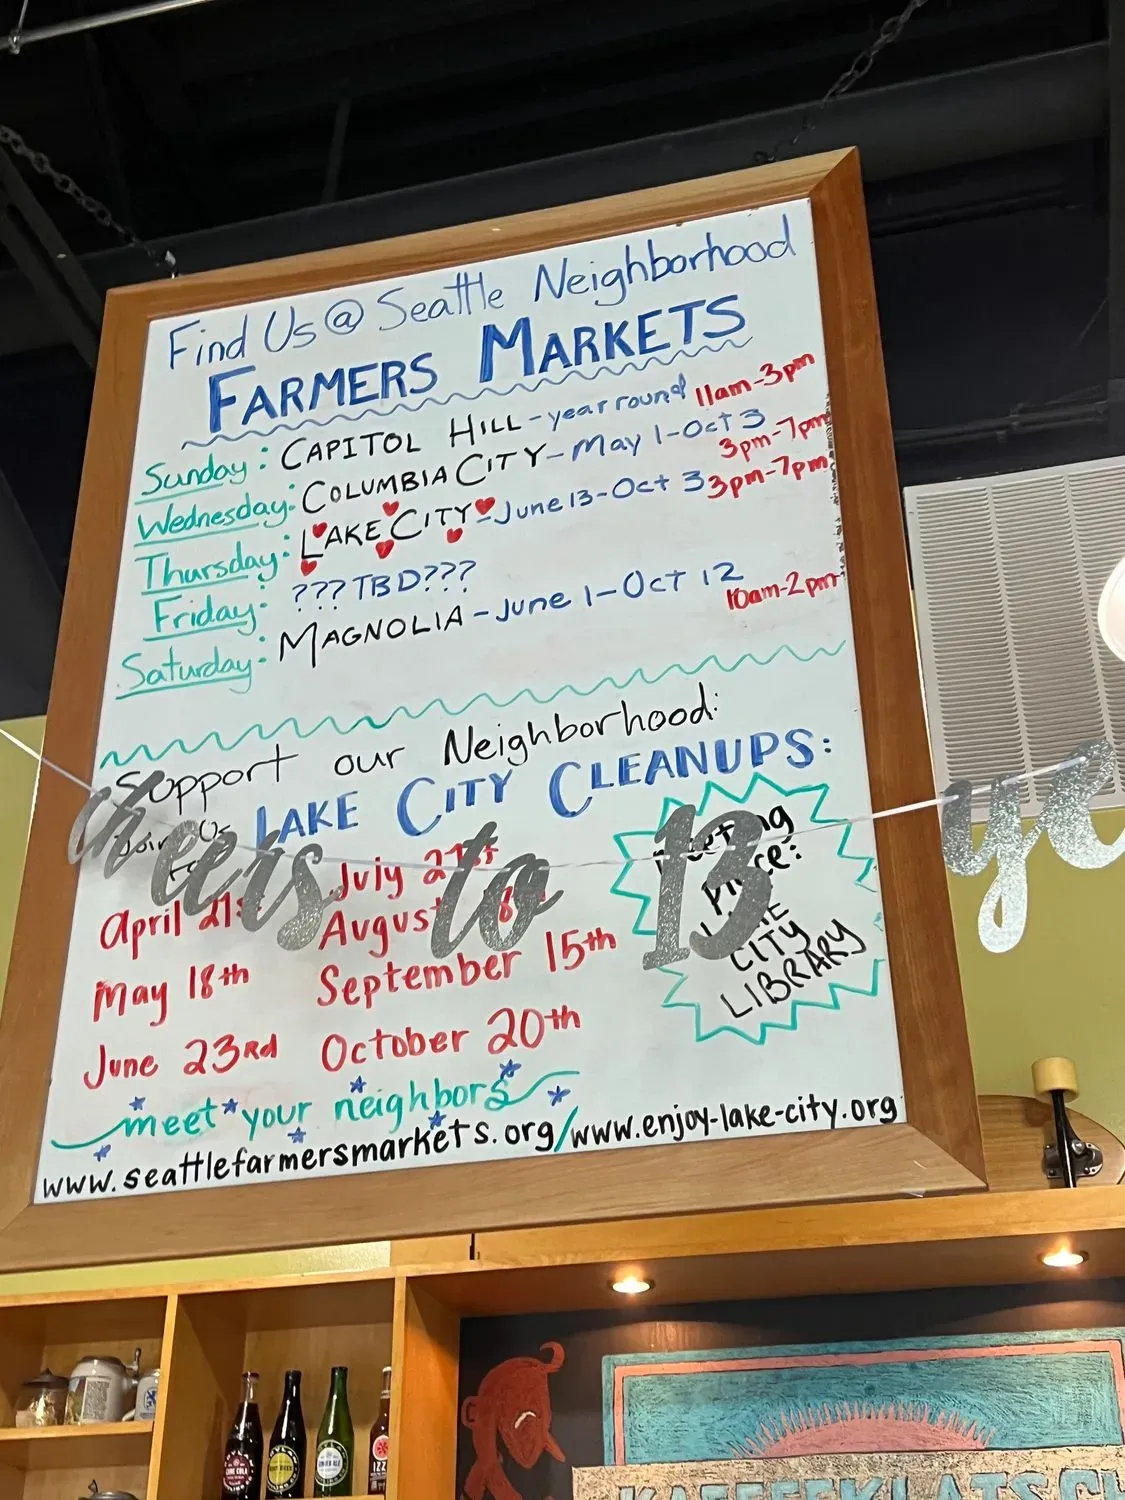 Find Us @ Seattle Neighborhood
FARMERS MARKETS
Sunday: CAPITOL HILL - year round 11am-3pm
Wednesday: COLUMBIA CITY - May 1-Oct 3 3pm-7pm
Thursday: LAKE CITY - June 13-Oct 3 3pm-7pm
Friday: ??? TBD???
Saturday: MAGNOLIA - June 1-Oct 12 10am-2pm
Support our Neighborhood:
LAKE CITY CLEANUPS:
Join Us
April 21st
May 18th
June 23rd
July 21st
August
September 15th
October 20th
Meeting
Place:
CITY
LIBRARY
cheers to 13 ye
meet your neighbors
www.seattlefarmersmarkets.org/www.enjoy-lake-city.org
KAFFEEKLATSCH